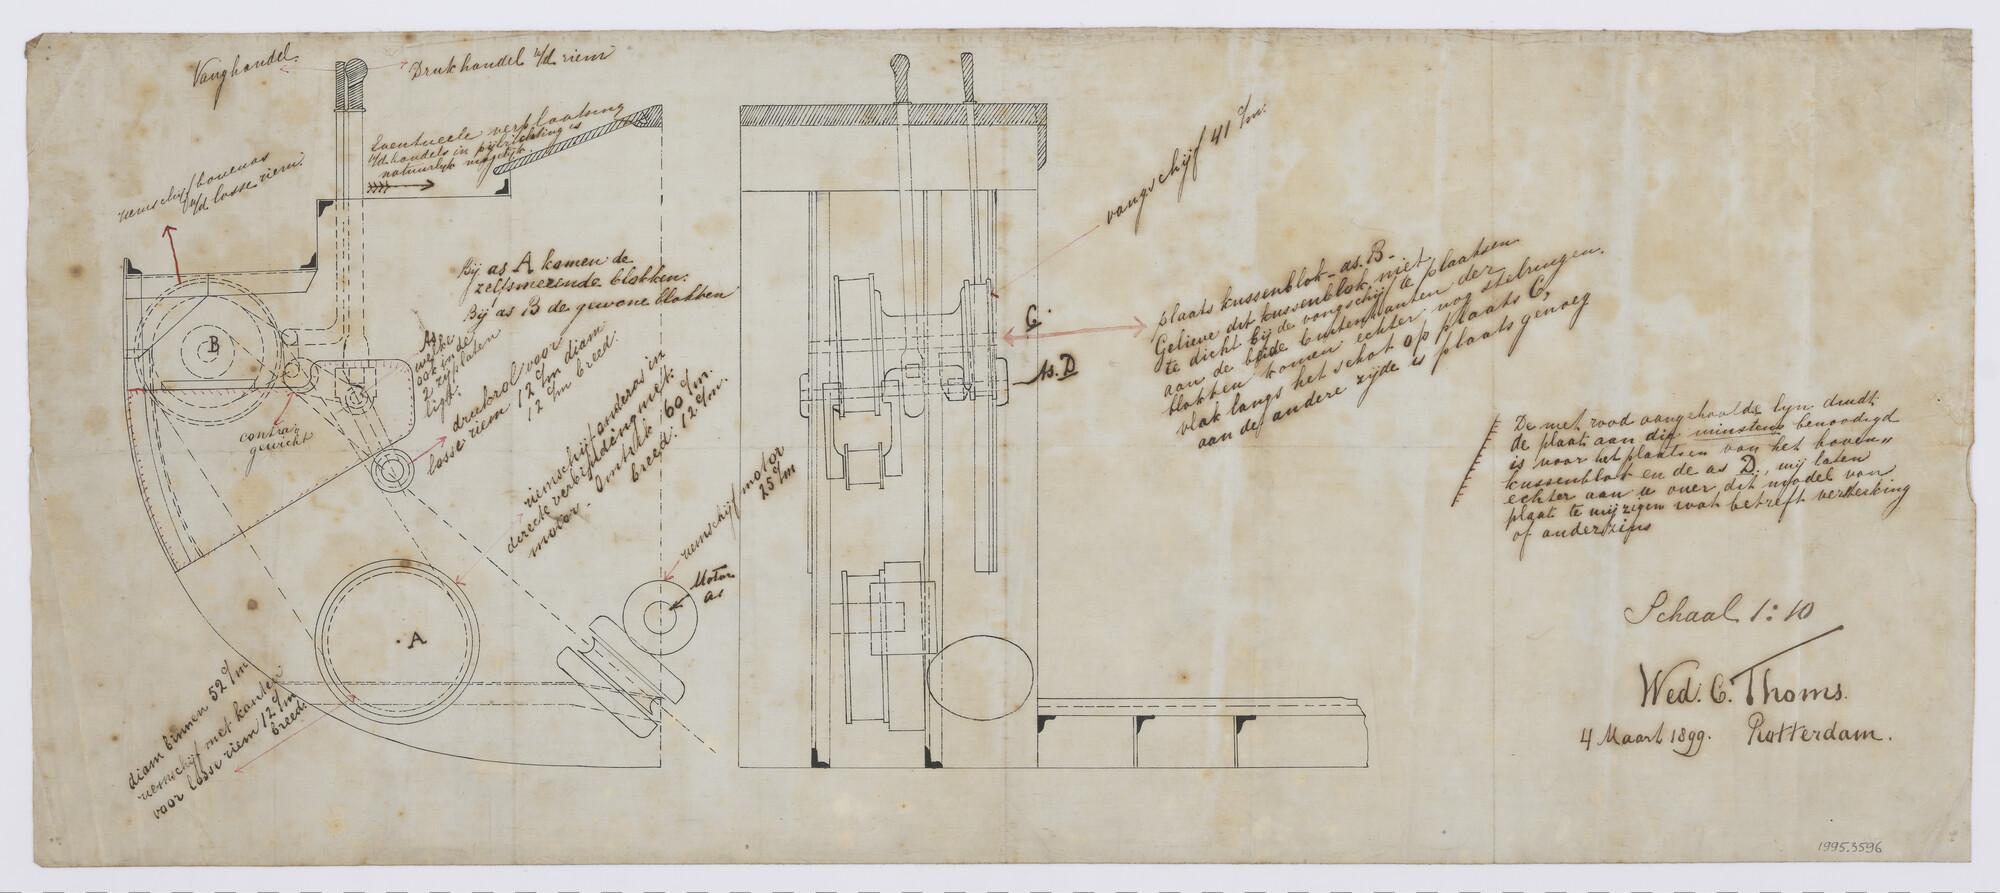 Vanghandel.
Drukhandel v/d riem
Eventueele verplaatsing
v/d handels in pijlrichting is
natuurlijk mogelijk.
riemschijf bovenas
v/d losse riem.
B
Bij as A komen de
zelfsmerende blokken.
Bij as B de gewone blokken
As
welke
ook in de
2 zyplaten
ligt.
drukrol voor
losse riem 12 c/m diam
12 c/m breed.
contra-
gewicht
riemschijf anderas in
directe verbinding met
motor. Omtrek 60 c/m.
breed: 12 c/m.
riemschijf motor
25 c/m
Motor
as
A
diam binnen 52 c/m
riemschijf met kanten
voor losse riem 12 c/m
breed.
vangschijf 41 c/m.
C.
As. D
plaats kussenblok - as. B -
Gelieve dit kussenblok niet
te dicht bij de vangschijf te plaatsen
aan de beide buitenkanten der
blokken komen echter nog stelringen.
vlak langs het schot op plaats C,
aan de andere zijde is plaats genoeg
De met rood aangehaalde lyn duidt
de plaat aan die minstens benoodigd
is voor het plaatsen van het boven„
kussenblok en de as D, wij laten
echter aan u over dit model van
plaat te wijzigen wat betreft versterking
of anderszins
Schaal 1:10
Wed. C. Thoms.
4 Maart 1899. Rotterdam.
1995.3596